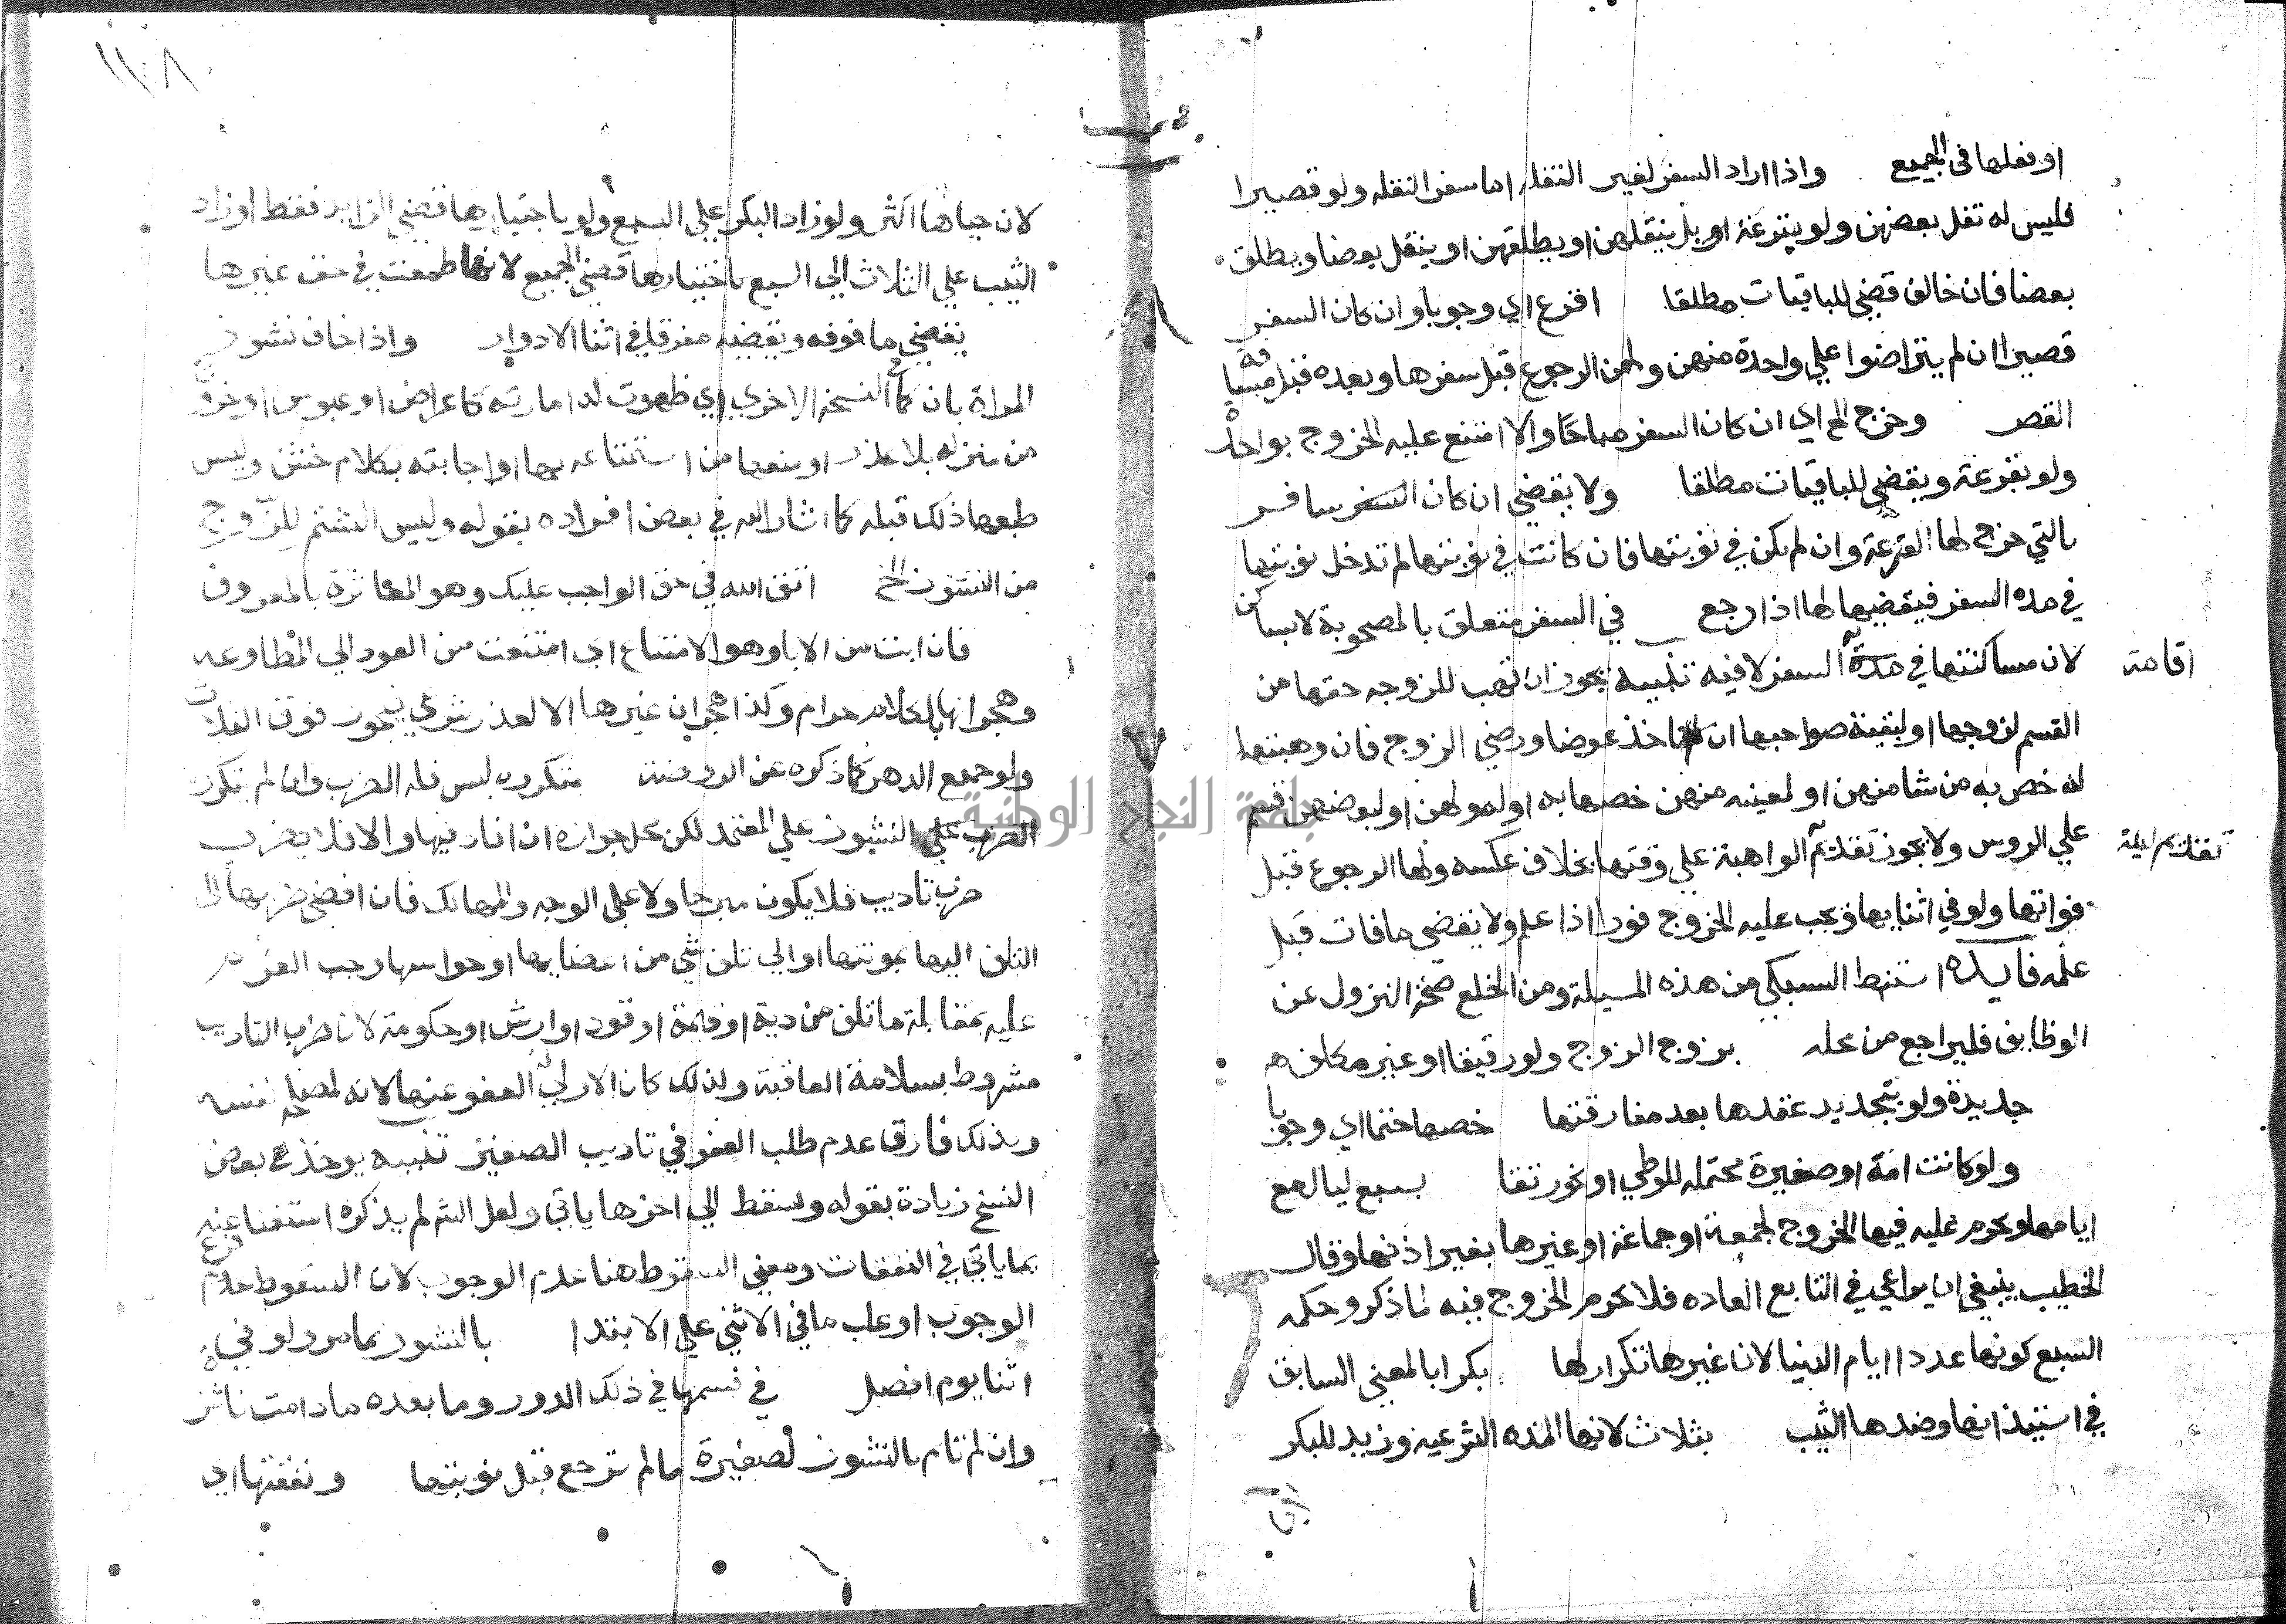 او نقلها في الجميع واذا اراد السفر لغير النقله اما سفر النقله ولو قصيرا
فليس له نقل بعضهن ولو بقرعة او بل ينقلهن او يطلقهن او ينقل بعضا ويطلق
بعضا فان خالف قضي للباقيات مطلقا اقرع اي وجوبا وان كان السفر
قصيرا ان لم يتراضوا علي واحدة منهن ولهن الرجوع قبل سفرها وبعده قبل مسافة
القصر وخرج الخ اي ان كان السفر مباحا والا امتنع عليه الخروج بواحدة
ولو بقرعة ويقضي للباقيات مطلقا ولا يقضي ان كان السفر سافر
بالتي خرج لها القرعة وان لم يكن في نوبتها فان كانت في نوبتها لم تدخل نوبتها
في مده السفر فيقضيها لها اذا رجع في السفر متعلق بالمصحوبة لا بساكن
لان مساكنتها في مدة السفر لا فيه تنبيه يجوز ان تهب للزوجه حقها من
اقامة
القسم لزوجها او لبقية صواحبها ان لم تاخذ عوضا ورضي الزوج فان وهبتها
له خص به من شا منهن او لمعينه منهن خصها به او له ولهن او لبعضهن قسم
علي الروس ولا يجوز تقديم الواهبة علي وقتها بخلاف عكسه ولها الرجوع قبل
تقديم ليلة
فواتها ولو في اثنايها ويجب عليه الخروج فورا اذا علم ولا يقضي ما فات قبل
علمه فايده استنبط السبكي من هذه المسيلة ومن الخلع صحة النزول عن
الوظايف فليراجع من محله بزوج الزوج ولو رقيقا او غير مكلف
جديدة ولو بتجديد عقدها بعد مفارقتها خصها حتما اي وجوبا
ولو كانت امة او صغيرة محتمله للوطي او نحو رتقا بسبع ليال مع
ايامها ويحرم عليه فيها الخروج لجمعة او جماعة او غيرها بغير اذنها وقال
الخطيب ينبغي ان يراعي في التابع العاده فلا يحرم الخروج فيه لما ذكر وحكمه
السبع كونها عدد ايام الدنيا لان غيرها تكرار لها بكرا بالمعني السابق
في استيذانها وضدها الثيب بثلاث لانها المده الشرعيه وزيد للبكر
١١٠٨
لان حياها اكثر ولو زاد البكر علي السبع ولو باختيارها قضي الزايد فقط او زاد
الثيب علي الثلاث الي السبع باختيارها قضي الجميع لانها طمعت في حق غيرها
يقضي ما فوقه ويقضيه مفرقا في اثنا الادوار واذا خاف نشوز
المراة بان كما في النسخة الاخري اي ظهرت له امارته كاعراض او عبوس او خروج
من منزله بلا عذر او منعها من استمتاعه بها او اجابته بكلام خشن وليس
طبعها ذلك قبله كما اشار اليه في بعض افراده بقوله وليس الشتم للزوج
من النشوز الخ اتق الله في حق الواجب عليك وهو المعاشرة بالمعروف
فان ابت من الابا وهو الامتناع اي امتنعت من العود الي المطاوعه
وهجرانها بالكلام حرام وكذا هجران غيرها الا لعذر شرعي فيجوز فوق الثلاث
ولو جميع الدهر كما ذكره عن الروضة بتكرره ليس فله الضرب وان لم تكرر
الضرب علي النشوز علي المعتمد لكن محل جوازه ان افاد فيها والا فلا يضرب
ضرب تاديب فلا يكون مبرحا ولا علي الوجه والمهالك فان افضي ضربها الي
التلف اليها بموتها او الي تلف شي من اعضايها او حواسها وجب الغرم
عليه بمقابلة ما تلف من دية او قيمة او قود او ارش او حكومة لان ضرب التاديب
مشروط بسلامة العاقبة ولذلك كان الاولي له العفو عنها لانه لمصلحة نفسه
وبذلك فارق عدم طلب العفو في تاديب الصغير تنبيه يوخذ في بعض
النسخ زيادة بقوله وسقط الي اخرها ياتي ولعل الش لم يذكره استغنا عنه
بما ياتي في النفقات ومعني السقوط هنا عدم الوجوب لان السقوط فرع
الوجوب او غلب ما في الاثني علي الابتدا بالنشوز بما مر ولو في
اثنا يوم افضل في قسمها في ذلك الدور وما بعده ما دامت ناشزة
وان لم تام بالنشوز لصغيرة ما لم ترجع قبل نوبتها ونفقتها اي
جامعة النجاح الوطنية